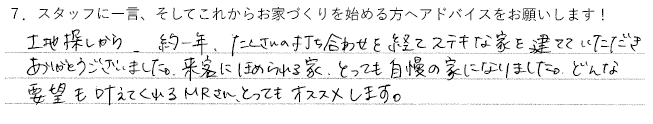 7．スタッフに一言、そしてこれからお家づくりを始める方へアドバイスをお願いします！
土地探しから、約一年、たくさんの打ち合わせを経てステキな家を建てていただき
ありがとうございました。来客にほめられる家、とっても自慢の家になりました。どんな
要望も叶えてくれるMRさん、とってもオススメします。